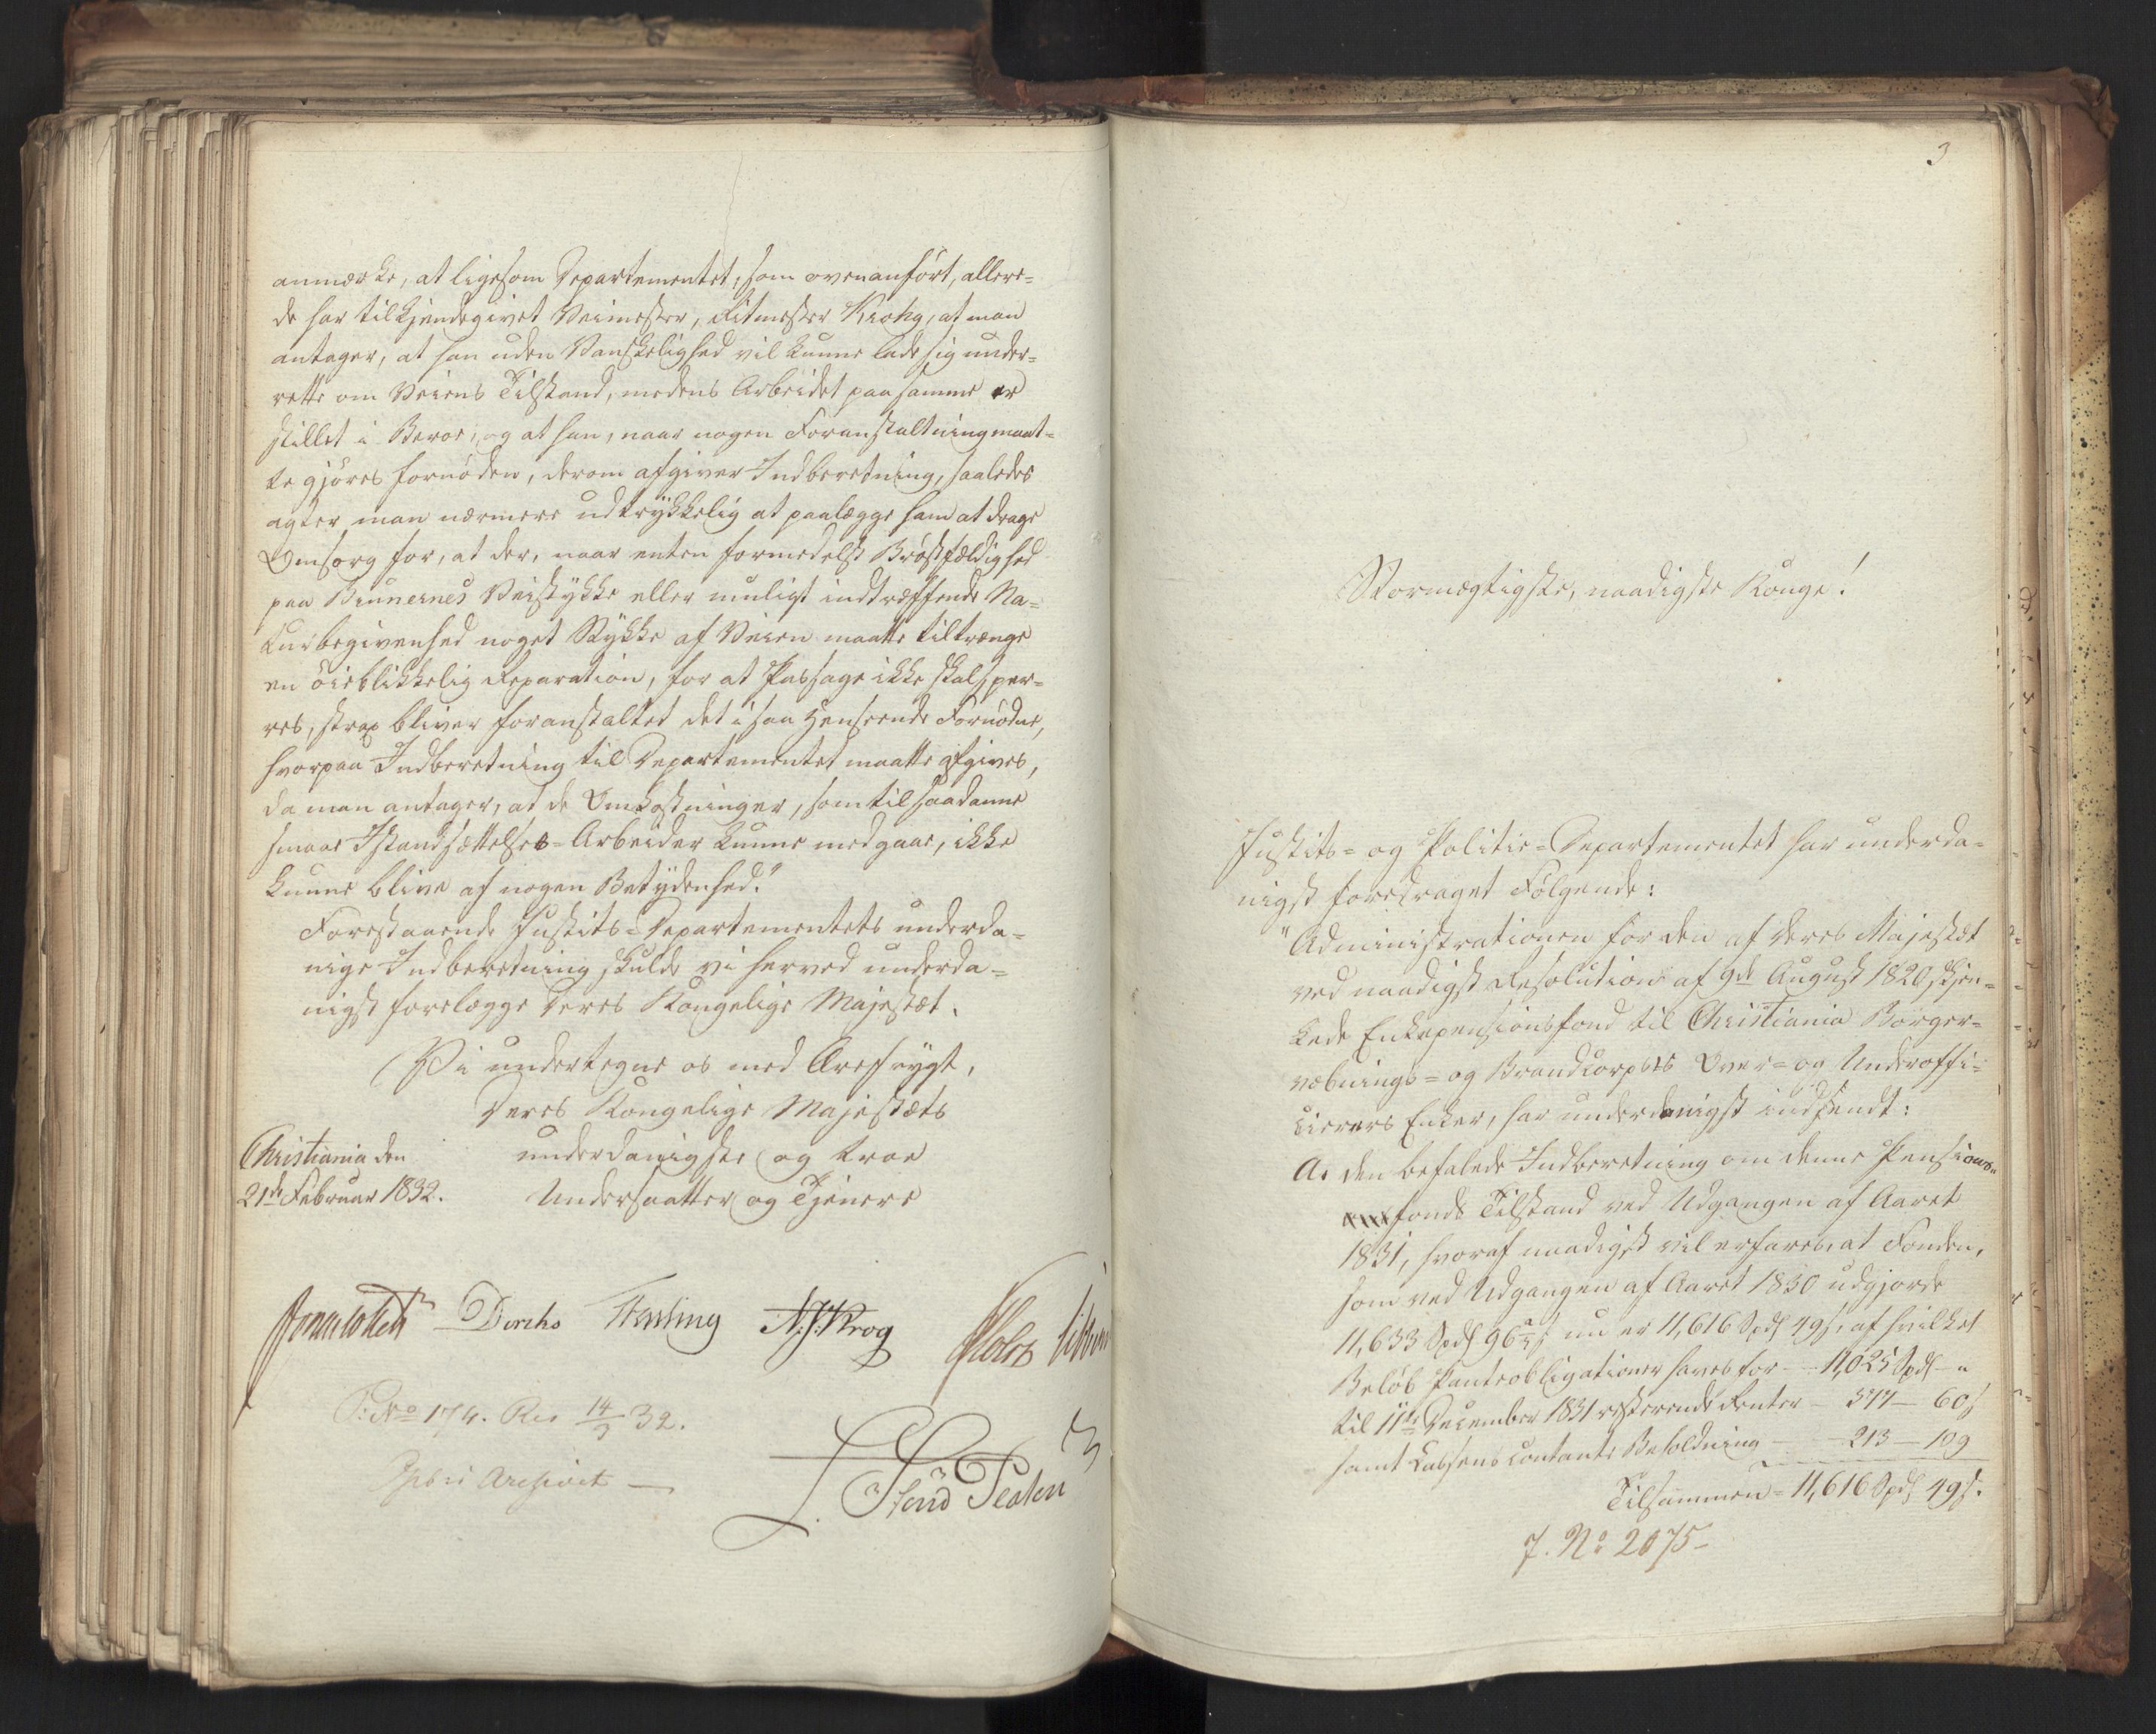 anmærke, at ligesom Departementet, som ovenanført, allere=
de har tilkjendegivet Veimester, Ritmester Krohg, at man
antager, at han uden Vanskelighed vil kunne lade sig under=
rette om Veiens Tilstand, medens Arbeidet paa samme er
stillet i Beroe, og at han, naar nogen Foranstaltning maat=
te gjøres fornøden, derom afgiver Indberetning, saaledes
agter man nærmere udtrykkelig at paalægge ham at drage
Omsorg for, at der, naar enten formedelst Brøstfældighed
paa Brunernes Veistykke eller muligt indtræffende Na=
turbegivenhed noget Stykke af Veien maatte tiltrænge
en øieblikkelig Reparation, for at Passage ikke skal sper=
res, strax bliver foranstaltet det i saa Henseende Fornødne,
hvorpaa Indberetning til Departementet maatte afgives,
da man antager, at de Omkostninger, som til saadanne
smaae Istandsættelses=Arbeider kunne medgaae, ikke
kunne blive af nogen Betydenhed."
Forestaaende Justits=Departementets underda=
nige Indberetning skulde vi herved underda=
nigst forelægge Deres Kongelige Majestæt.
Vi undertegne os med Ærefrygt,
Deres Kongelige Majestæts
Christiania den underdanigste og troe
21de Februar 1832. Undersaatter og Tjenere
Jonas Collett Diriks Fasting N. J. Krog Holst
P: No 174. Res 14/3 32.
L. Stoud Platou
3
Stormægtigste, naadigste Konge!
Justits= og Politie=Departementet har underda=
nigst foredraget Følgende:
"Administrationen for den af Deres Majestæt
ved naadigst Resolution af 9de August 1820 skjen=
kede Enkepensionsfond til Christiania Borger=
væbnings= og Brandcorpses Over= og Underoffi=
cierers Enker, har underdanigst indsendt:
A. den befalede Indberetning om denne Pensions=
fonds Tilstand ved Udgangen af Aaret
1831, hvoraf naadigst vil erfares, at Fonden,
som ved Udgangen af Aaret 1830 udgjorde
11,633 Spd 96 ß nu er 11,616 Spd 49 ß, af hvilket
Beløb Panteobligationer haves for - 11,025 Spd - "
til 11te December 1831 resterende Renter - 377 - 60 ß
samt Kassens contante Beholdning - 213 - 109
Tilsammen = 11,616 Spd 49 ß.
J. No 2075-